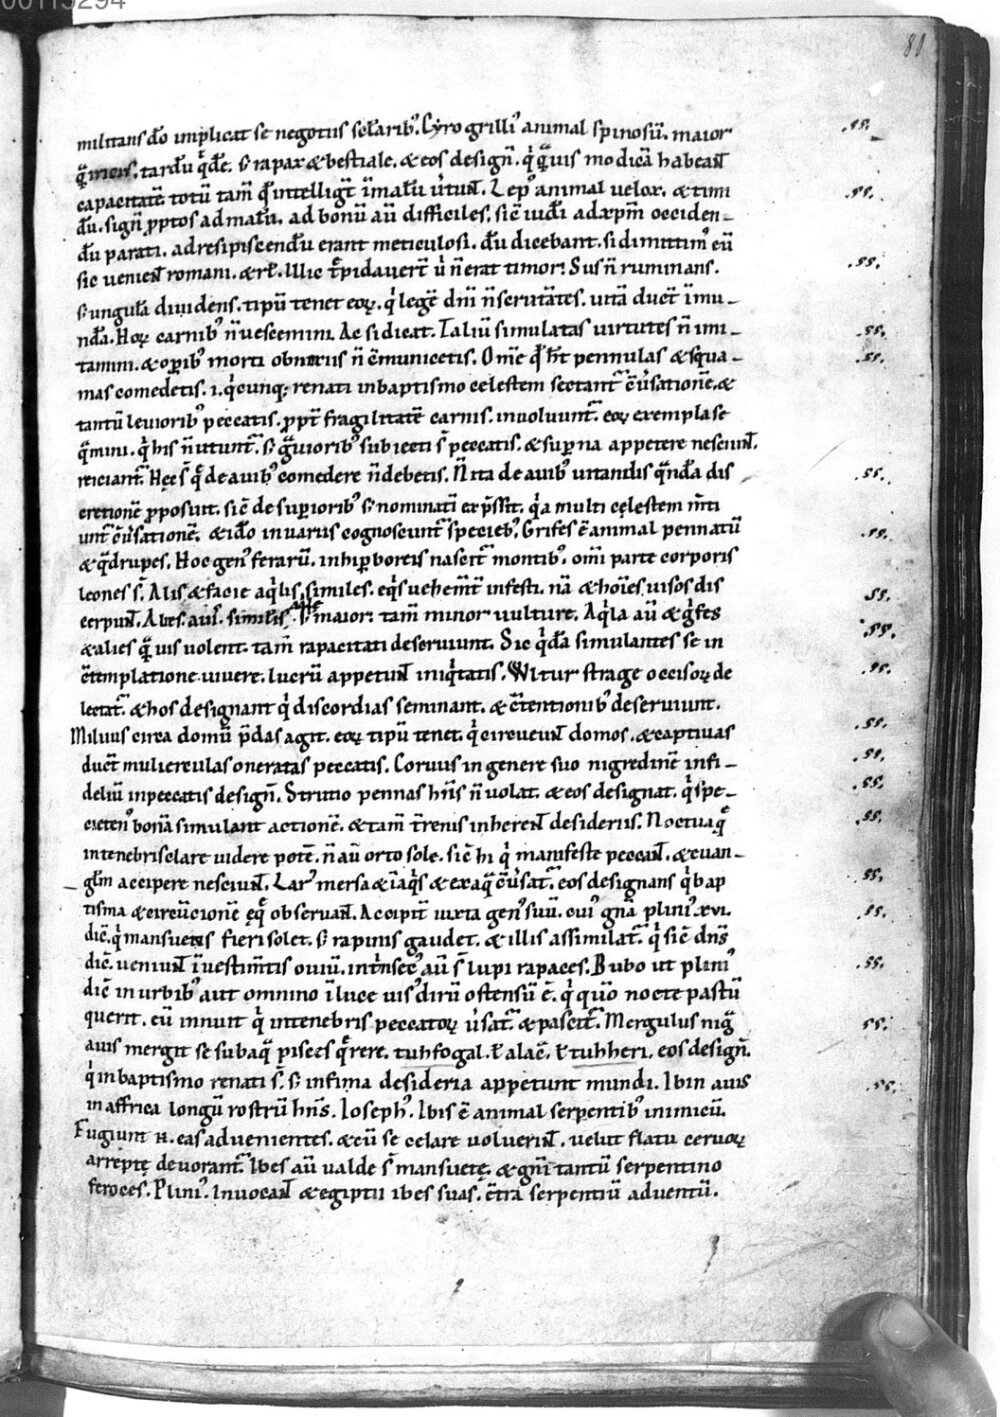 00115294
81
militans dō implicat se negotiis sclarib᷒. Cyrogrilli᷒ animal spinosū. maior
tardū q̄dē. s; rapax & bestiale. & eos design̄. q̇ q̄uis modicā habeant
capacitatē totū tam̄ qd̄ intelligit̄ ī malū ūtunt̄. Lep᷒ animal velox. & timi
dū. sign̄ p̄ptos ad malū. ad bonū aū difficiles. sic̄ iudi ad xp̄m occiden-
dū parati. ad resipiscendū erant meticulosi. dū dicebant. si dimittim᷒ eū
sic venient romani. & rł. Illic t̄pidaverт̄ ū n̄ erat timor. Sus n̄ ruminans.
s; ungulā dividens. tipū tenet eoꝝ. q̇ legē dn̄i n̄ scrutātes. vitā ducт̄ īmu-
ndā. Hoꝝ carnib᷒ n̄ vescemini. Ac si dicat. Taliū simulatas virtutes n̄ imi-
tamini. & op̄ib᷒ morti obnoxiis n̄ c̄municetis. Om̄e qd̄ ht̄ pennulas & squa-
mas comedetis. i. q̇cunq; renati in baptismo celestem sectant̄ c̄v̄sationē. &
tantū leviorib᷒ peccatis. p̄pt̄ fragilitatē carnis. involvunt̄. eoꝝ exempla se
q̄mini. q̇ his n̄ utunt̄. s; ḡviorib᷒ subiecti s̄ peccatis. & sup̄na appetere nesciunt̄.
reiciant̄. Hęc s̄ q̄ de avib᷒ comedere n̄ debetis. N̄ ita de avib᷒ vitandis q̄ndā dis
cretionē p̄posuit. sic̄ de sup̄iorib᷒ s; nominatī exp̄ssit. q̇a multi cęlestem m̄ti
unt̄ c̄v̄sationē. & idō in variis cognoscunt̄ specieb᷒. Grifes ē animal pennatū
& q̄drupes. Hoc gen᷒ ferarū. in hip̄boreis nascit̄ montib᷒. om̄i parte corporis
leones s̄. Alis & facie aq̇lis similes. eq̇s vehem̄t̄ infesti. nā & hoīes visos dis
cerpunt̄. maior. tam̄ minor vulture. Aq̇la aū & ġfes
& alies q̄uis volent. tam̄ rapacitati deserviunt. Sic q̇dā simulantes se in
c̄templatione vivere. lucrū appetunt̄ iniq̇tatis. Wltur strage occisoꝝ de
lectat̄. & hos designant q̇ discordias seminant. & c̄tentionib᷒ deserviunt.
Milvus circa domū p̄das agit. eoꝝ tipū tenet. q̇ circueunt̄ domos. & captivas
ducт̄ mulierculas oneratas peccatis. Corvus in genere suo nigredinē infi-
deliū in peccatis design̄. Strutio pennas hn̄s n̄ volat. & eos designat. q̇ spe-
cieten᷒ bonā simulant actionē. & tam̄ t̄renis inherent̄ desideriis. Noctua q̄
in tenebris clare videre potē. n̄ aū orto sole. sic̄ hi q̇ manifeste peccant̄. & evan-
glm̄ accipere nesciunt̄. Lar᷒ mersa & ī aq̇s & ex aq̄ c̄v̄sat̄. eos designans q̇ bap
tisma & circūcionē ęq̄ observant̄. Accipit̄ iuxta gen᷒ suū. cui᷒ gn̄a plini᷒ xvi.
dic̄. q̇ mansuetus fieri solet. s; rapinis gaudet. & illis assimilat̄. q̇ sic̄ dn̄s
dic̄. veniunt̄ ī vestim̄tis oviū. int̄nsec᷒ aū s̄ lupi rapaces. Bubo ut plini᷒
dic̄ in urbib᷒ aut omnino ī luce vis᷒ dirū ostensū ē. q̇ quō nocte pastū
querit. eū innuit q̇ in tenebris peccatoꝝ v̄sat̄. & pascit̄. Mergulus nig̈
avis mergit se sub aq̄ pisces q̄rere. tuhfogal. ł alaē. ł tuhheri. eos design̄.
q̇ in baptismo renati s̄. s; infima desideria appetunt mundi. Ibin avis
in affrica longū rostrū hn̄s. Ioseph᷒. Ibis ē animal serpentib᷒ inimicū.
Fugiunt н. eas advenientes. & cū se celare voluerint̄. velut flatu cervoꝝ
arreptę devorant̄. Ibes aū valde s̄ mansuetę. & gn̄i tantū serpentino
feroces. Plini᷒. Invocant̄ & egiptii ibes suas. c̄tra serpentiū adventū.